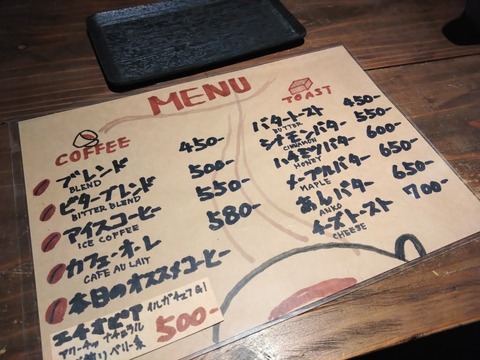 MENU
COFFEE
ブレンド 450-
BLEND
ビターブレンド 500-
BITTER BLEND
アイスコーヒー 550-
ICE COFFEE
カフェ・オ・レ 580-
CAFE AU LAIT
本日のオススメコーヒー
エチオピア
ナチュラル
ベリー系
500-
TOAST
バタートースト 450-
BUTTER
シナモンバター 550-
CINNAMON
ハチミツバター 600-
HONEY
メープルバター 650-
MAPLE
あんバター 650-
ANKO
チーズトースト 700-
CHEESE